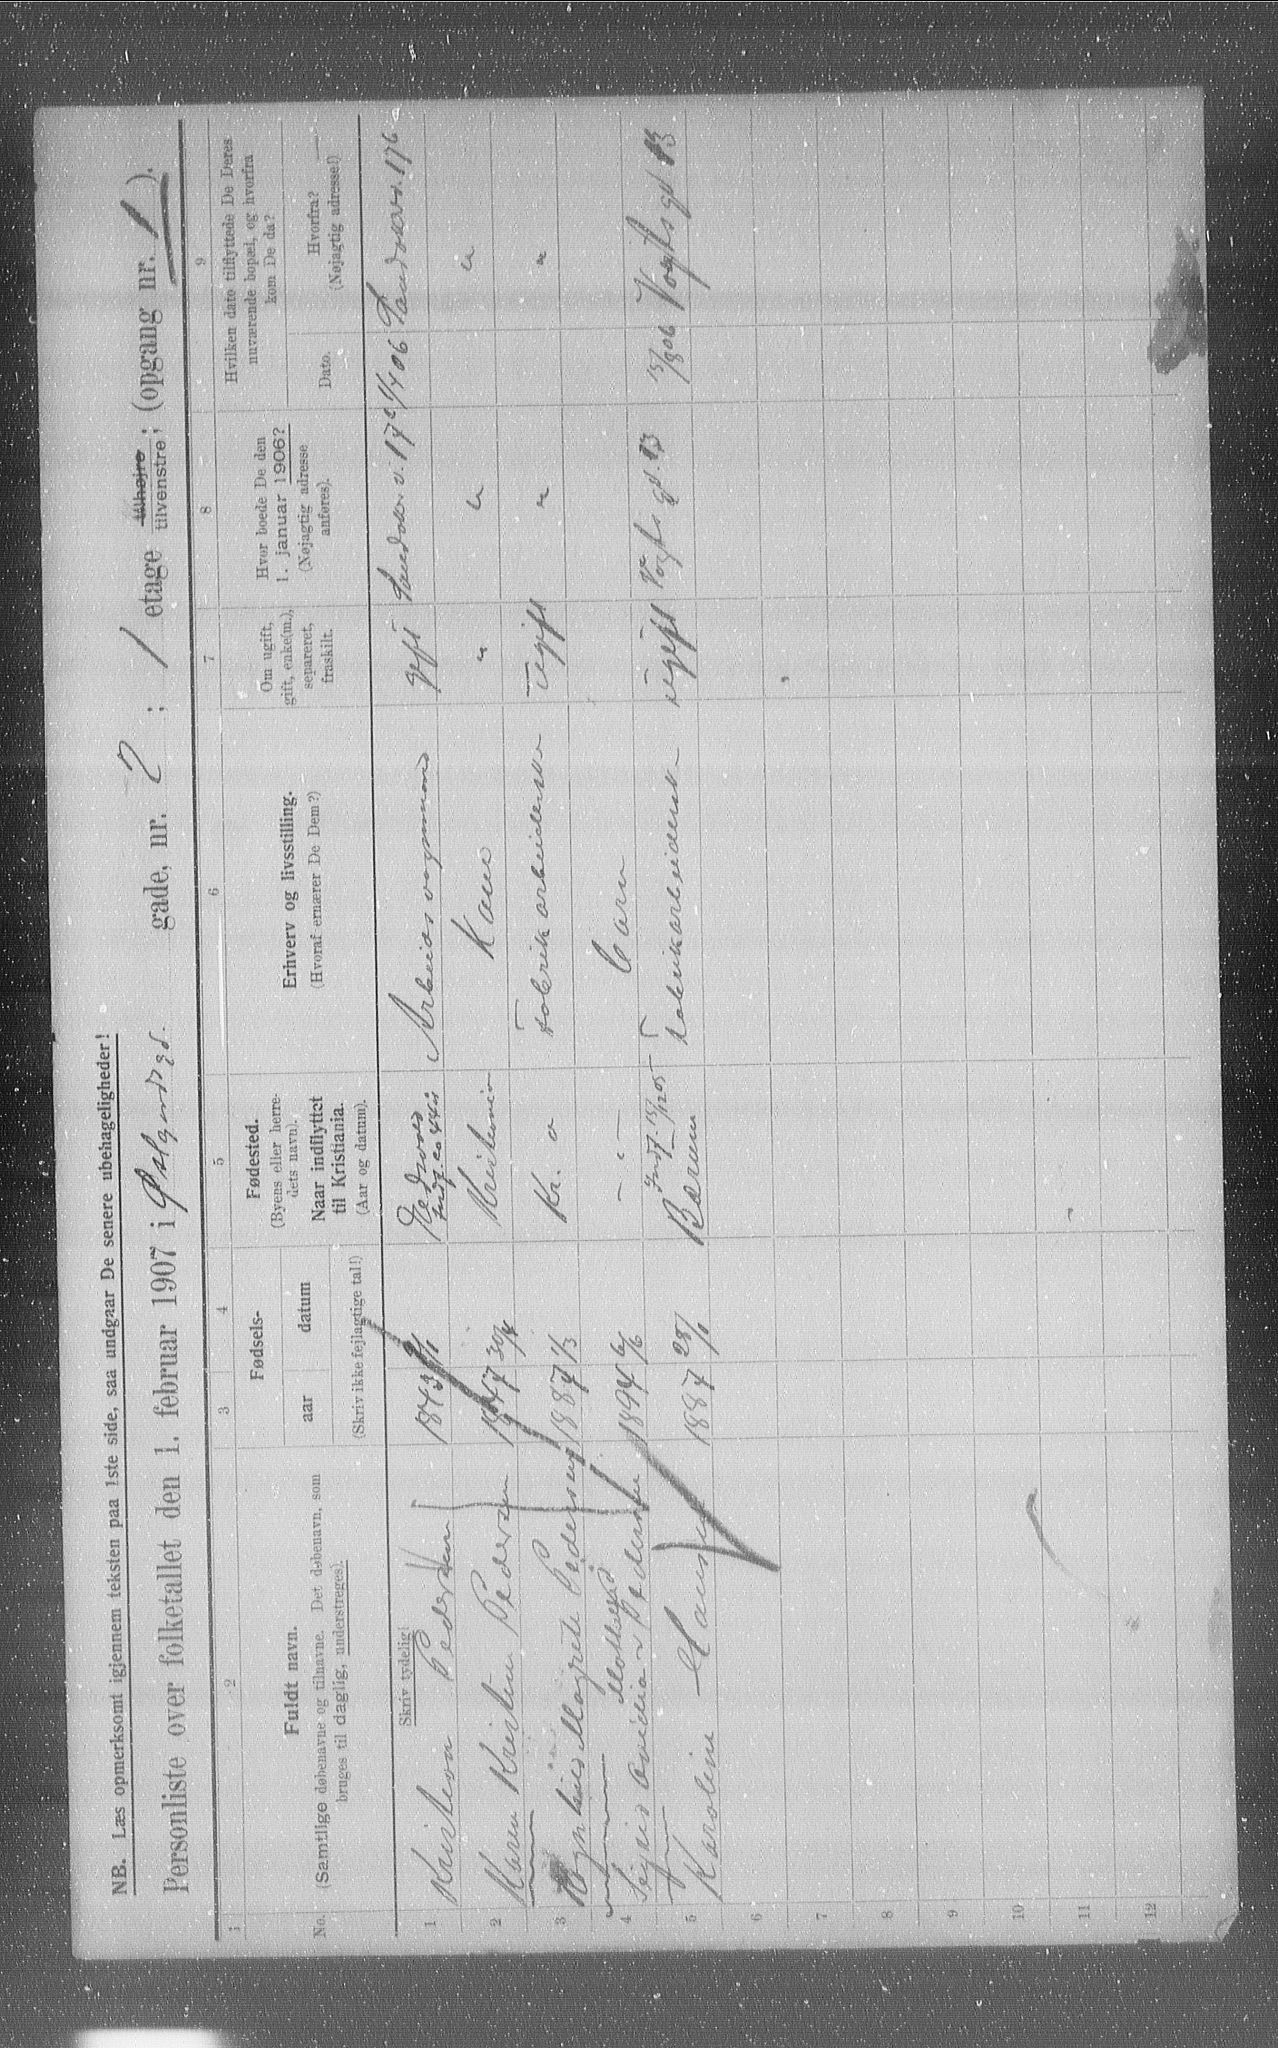 NB. Læs opmerksomt igjennem teksten paa 1ste side, saa undgaar De senere ubehageligheder!
Personliste over folketallet den 1. februar 1907 i gade, nr. 2 ; 1 etage tilhøjre tilvenstre; (opgang nr. 1 ).
1 2 3 4 5 6 7 8 9
No. Fuldt navn.
(Samtlige døbenavne og tilnavne. Det døbenavn, som
bruges til daglig, understreges).
Fødsels-
aar datum
(Skriv ikke fejlagtige tal!)
Fødested.
(Byens eller herre-
dets navn).
Naar indflyttet
til Kristiania.
(Aar og datum).
Erhverv og livsstilling.
(Hvoraf ernærer De Dem?)
Om ugift,
gift, enke(m.),
separeret,
fraskilt.
Hvor boede De den
1. januar 1906?
(Nøjagtig adresse
anføres).
Hvilken dato tilflyttede De Deres
nuværende bopæl, og hvorfra
kom De da?
Dato.
Hvorfra?
(Nøjagtig adresse!)
Skriv tydelig!
1 Kristian Pedersen 1843 gift
2 Karen Kristine Pedersen 1847 30/4 Kristiania Kone " " "
3 Ragnhild Margrete Pedersen 1887 1/3 Kr. a Fabrikarbeiderske Ugift " "
4 Pedersen 1894 6/6 - " - Barn
5 Karoline Hansen 1887 28/1 Bærum Indf. 15/12 05 Fabrikarbeiderske ugift Vogts gd. 13 15/8 06 Vogts gd 13
6
7
8
9
10
11
12